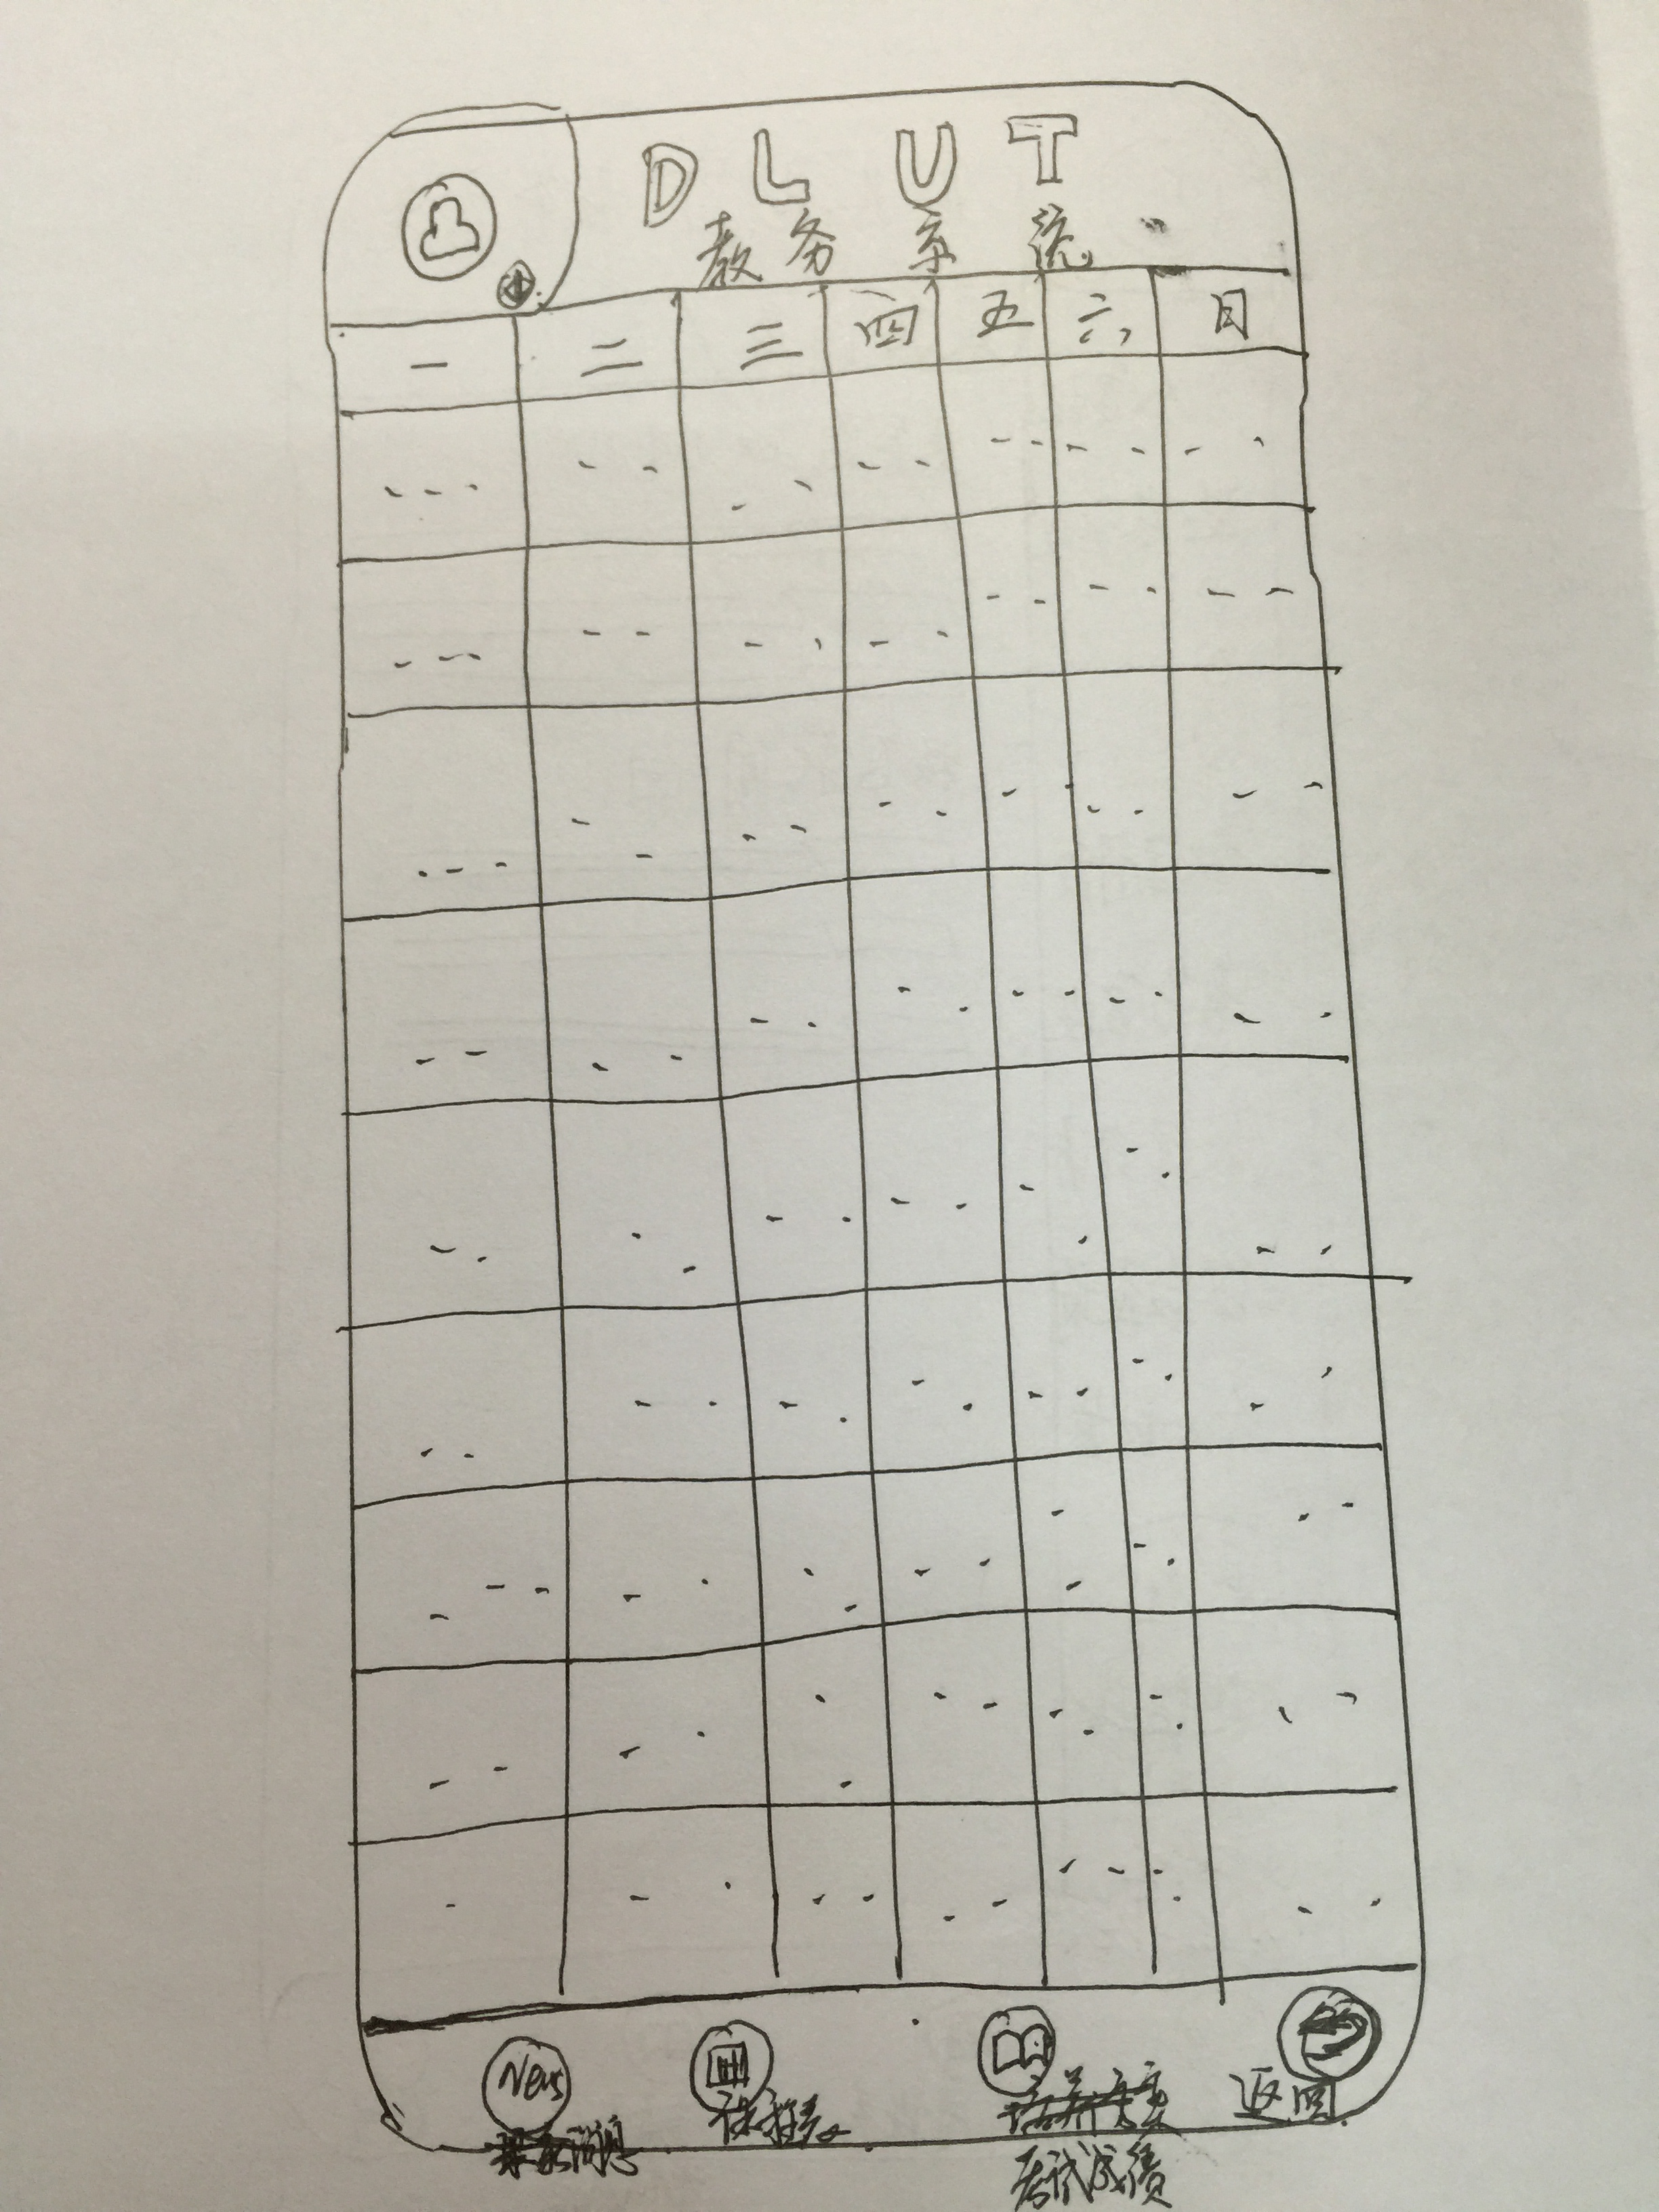 DLUT
教务系统
一 二 三 四 五 六 日
News
消息
返回
考试成绩